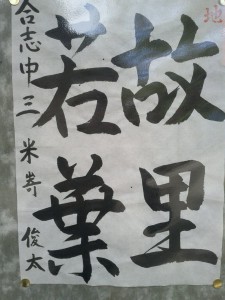 故里
若葉
合志中三 米嵜 俊太